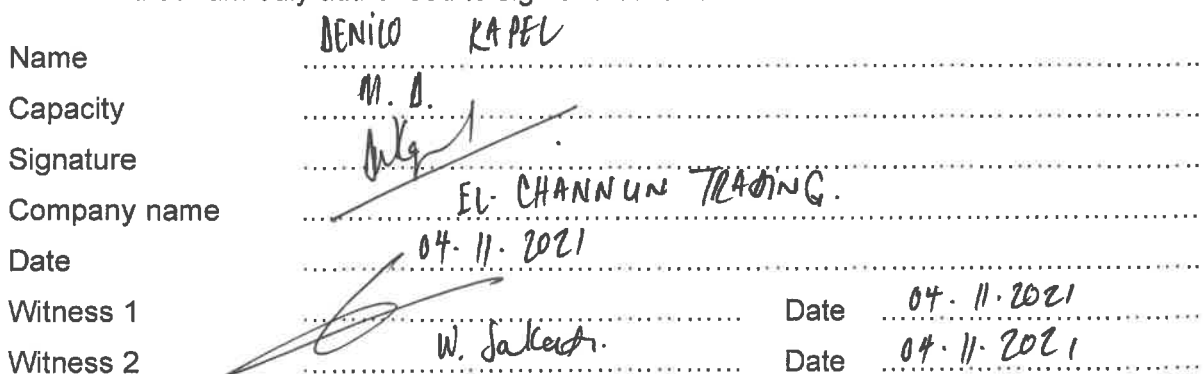 Name DENICO KAPEL
Capacity M. D.
Signature
Company name EL-CHANNUN TRADING.
Date 04. 11. 2021
Witness 1 Date 04. 11. 2021
Witness 2 W. Date 04. 11. 2021